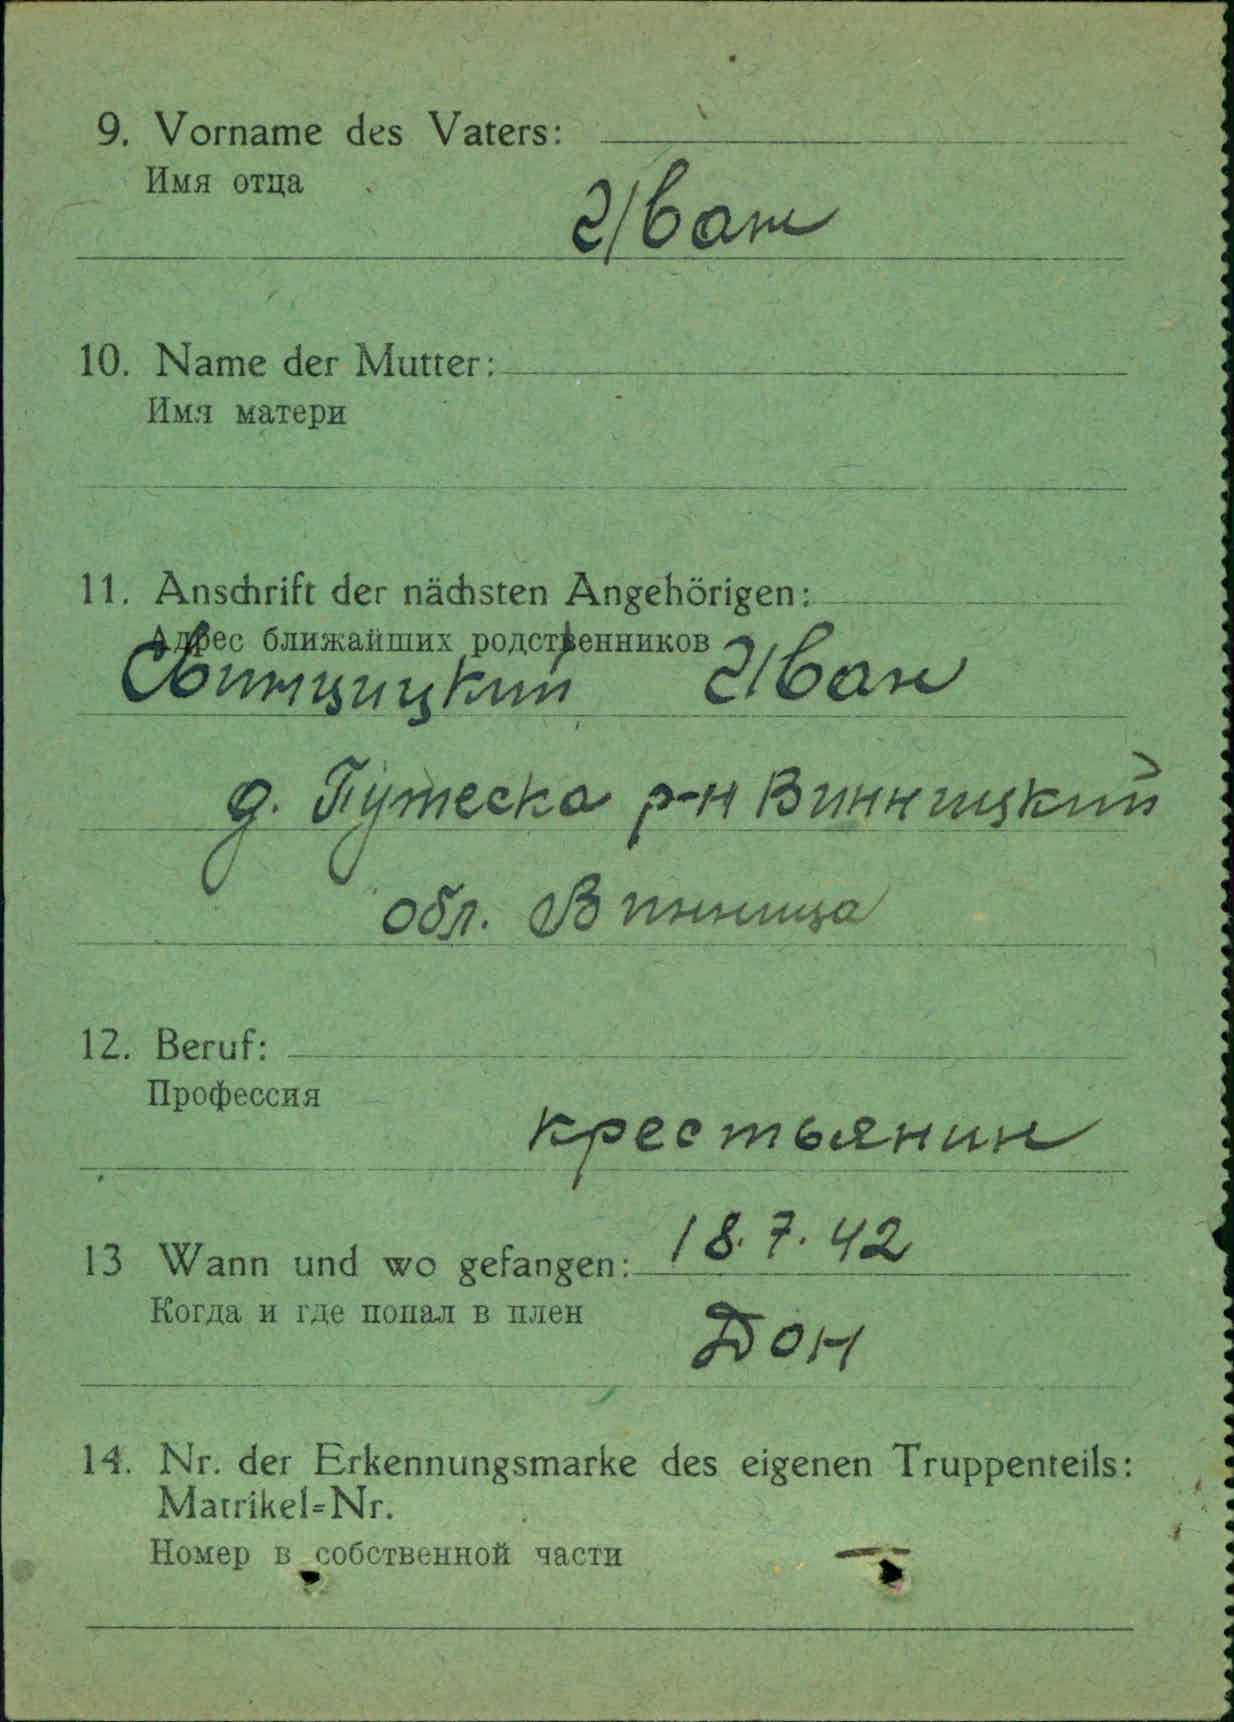 9. Vorname des Vaters:
Имя отца
Иван
10. Name der Mutter:
Имя матери
11. Anschrift der nächsten Angehörigen:
Адрес ближайших родственников
Свинцицкий Иван
д. Путеска р-н Винницкий
обл. Винница
12. Beruf:
Профессия
крестьянин
13 Wann und wo gefangen: 18.7.42
Когда и где попал в плен
Дон
14. Nr. der Erkennungsmarke des eigenen Truppenteils:
Matrikel=Nr.
Номер в собственной части
—